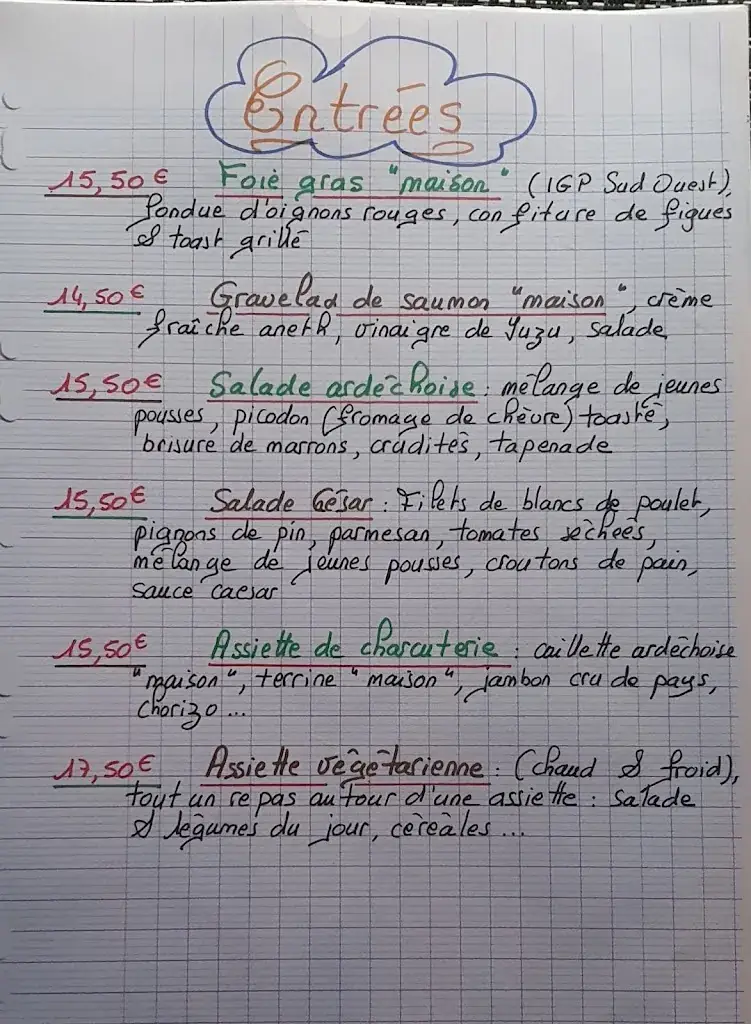 Entrées
15,50€ Foie gras "maison" (IGP Sud Ouest),
fondue d'oignons rouges, confiture de figues
& toast grillé
14,50€ Gravelad de saumon "maison", crème
fraîche aneth, vinaigre de Yuzu, salade
15,50€ Salade ardèchoise : mélange de jeunes
pousses, picodon (fromage de chèvre) toasté,
brisure de marrons, crudités, tapenade
15,50€ Salade César : Filets de blancs de poulet,
pignons de pin, parmesan, tomates séchées,
mélange de jeunes pousses, croutons de pain,
sauce caesar
15,50€ Assiette de charcuterie : caillette ardèchoise
"maison", terrine "maison", jambon cru de pays,
chorizo ...
17,50€ Assiette végétarienne : (chaud & froid),
tout un repas autour d'une assiette : salade
& légumes du jour, céréales ...